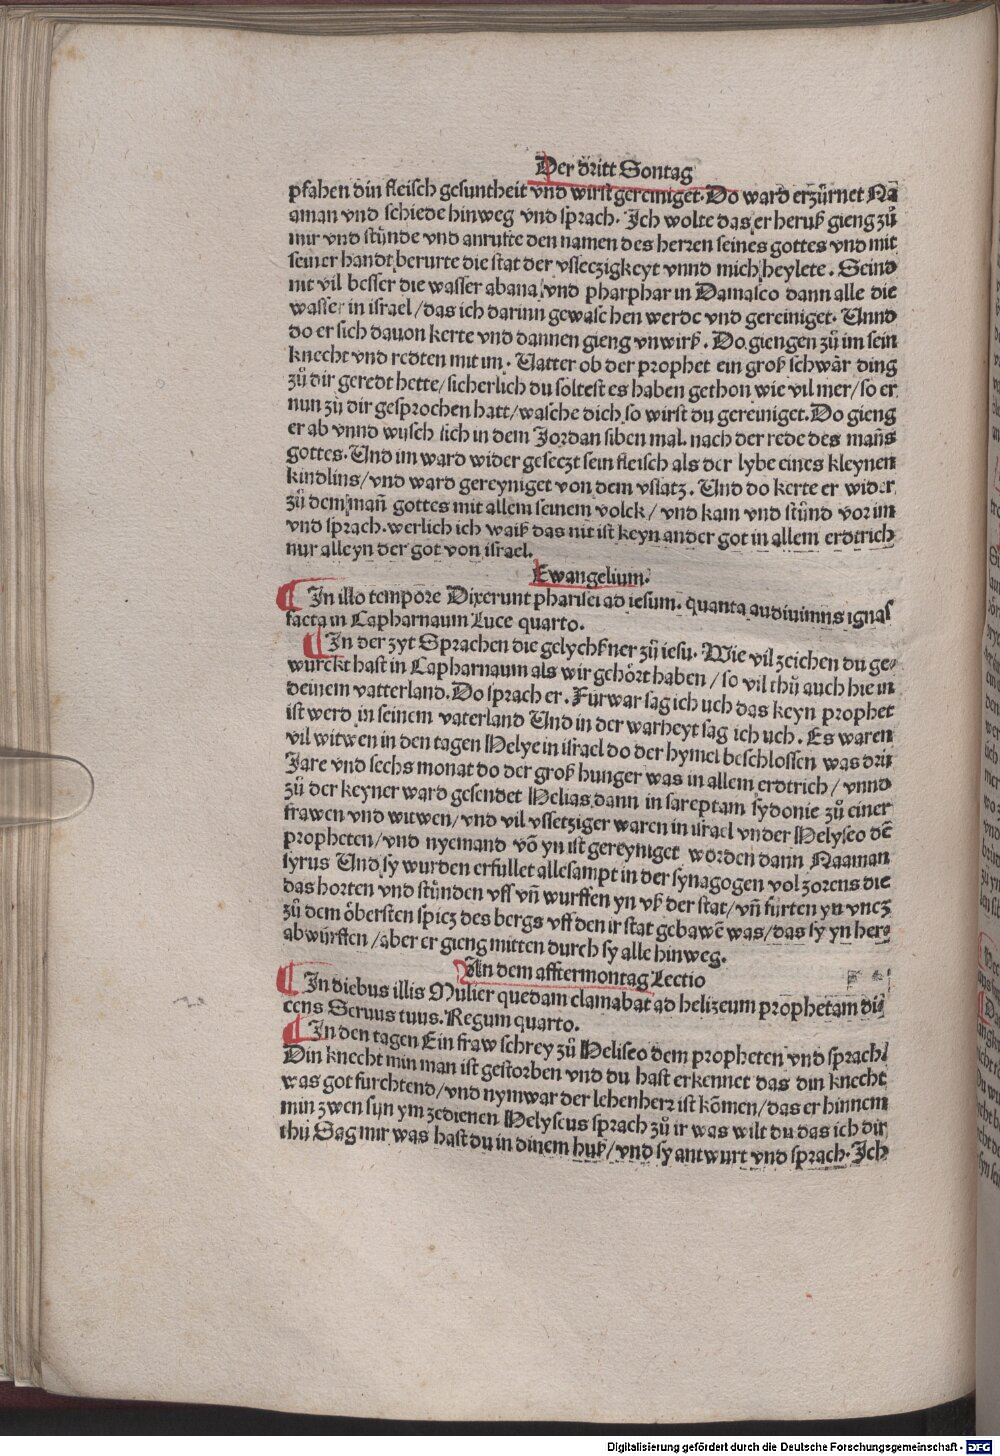 Der dritt Sontag
pfahen din fleisch gesuntheit vnd wirst gereiniget. Do ward erzürnet Na
aman vnd schiede hinweg vnd sprach. Ich wolte das er heruß gieng zů
mir vnd stůnde vnd anrufte den namen des herren seines gottes vnd mit
seiner handt berurte die stat der vsseczigkeyt vnnd mich heylete. Seind
nit vil besser die wasser abana vnd pharphar in Damasco dann alle die
wasser in israel /das ich darinn gewaschen werde vnd gereiniget. Vnnd
do er sich dauon kerte vnd dannen gieng vnwirß. Do giengen zů im sein
knecht vnd redten mit im. Vatter ob der prophet ein groß schwär ding
zů dir geredt hette/sicherlich du soltest es haben gethon wie vil mer/so er
nun zů dir gesprochen hatt/wasche dich so wirst du gereiniget. Do gieng
er ab vnnd wusch sich in dem Jordan siben mal. nach der rede des mañs
gottes. Vnd im ward wider geseczt sein fleisch als der lybe eines kleynen
kindlins/vnd ward gereyniget von dem vslatz. Vnd do kerte er wider
zů dem mañ gottes mit allem seinem volck/ vnd kam vnd stůnd vor im
vnd sprach. werlich ich waiß das nit ist keyn ander got in allem erdtrich
nur alleyn der got von israel.
Ewangelium.
¶ In illo tempore Dixerunt pharisei ad iesum. quanta audiuimns ignas
facta in Capharnaum Luce quarto.
¶ In der zyt Sprachen die gelychßner zů iesu. Wie vil zeichen du ge⸗
wurckt hast in Capharnaum als wir gehört haben /so vil thů auch hie in
deinem vatterland. Do sprach er. Fürwar sag ich uch das keyn prophet
ist werd in seinem vaterland Vnd in der warheyt sag ich uch. Es waren
vil witwen in den tagen Helye in israel do der hymel beschlossen was drü
Jare vnd sechs monat do der groß hunger was in allem erdtrich/ vnnd
zů der keyner ward gesendet Helias dann in sareptam sydonie zů einer
frawen vnd witwen/vnd vil vssetziger waren in israel vnder Helyseo dē
propheten/vnd nyemand vō yn ist gereyniget worden dann Naaman
syrus Vnd sy wurden erfullet allesampt in der synagogen vol zorens die
das horten vnd stůnden vff vñ wurffen yn vß der stat/vñ furten yn vncz
zů dem öbersten spicz des bergs vff den ir stat gebawē was/das sy yn her⸗
abwürffen /aber er gieng mitten durch sy alle hinweg.
An dem afftermontag Lectio
¶ In diebus illis Mulier quedam clamabat ad helizeum prophetam di⸗
cens Seruus tuus. Regum quarto.
¶ In den tagen Ein fraw schrey zů Heliseo dem propheten vnd sprach/
Din knecht min man ist gestorben vnd du hast erkennet das din knecht
was got furchtend/vnd nymwar der lehenherr ist kōmen/das er hinnem
min zwen sün ym zedienen Helyseus sprach zů ir was wilt du das ich dir
thů Sag mir was hast du in dinem huß/vnd sy antwurt vnd sprach. Ich
Digitalisierung gefördert durch die Deutsche Forschungsgemeinschaft - DFG